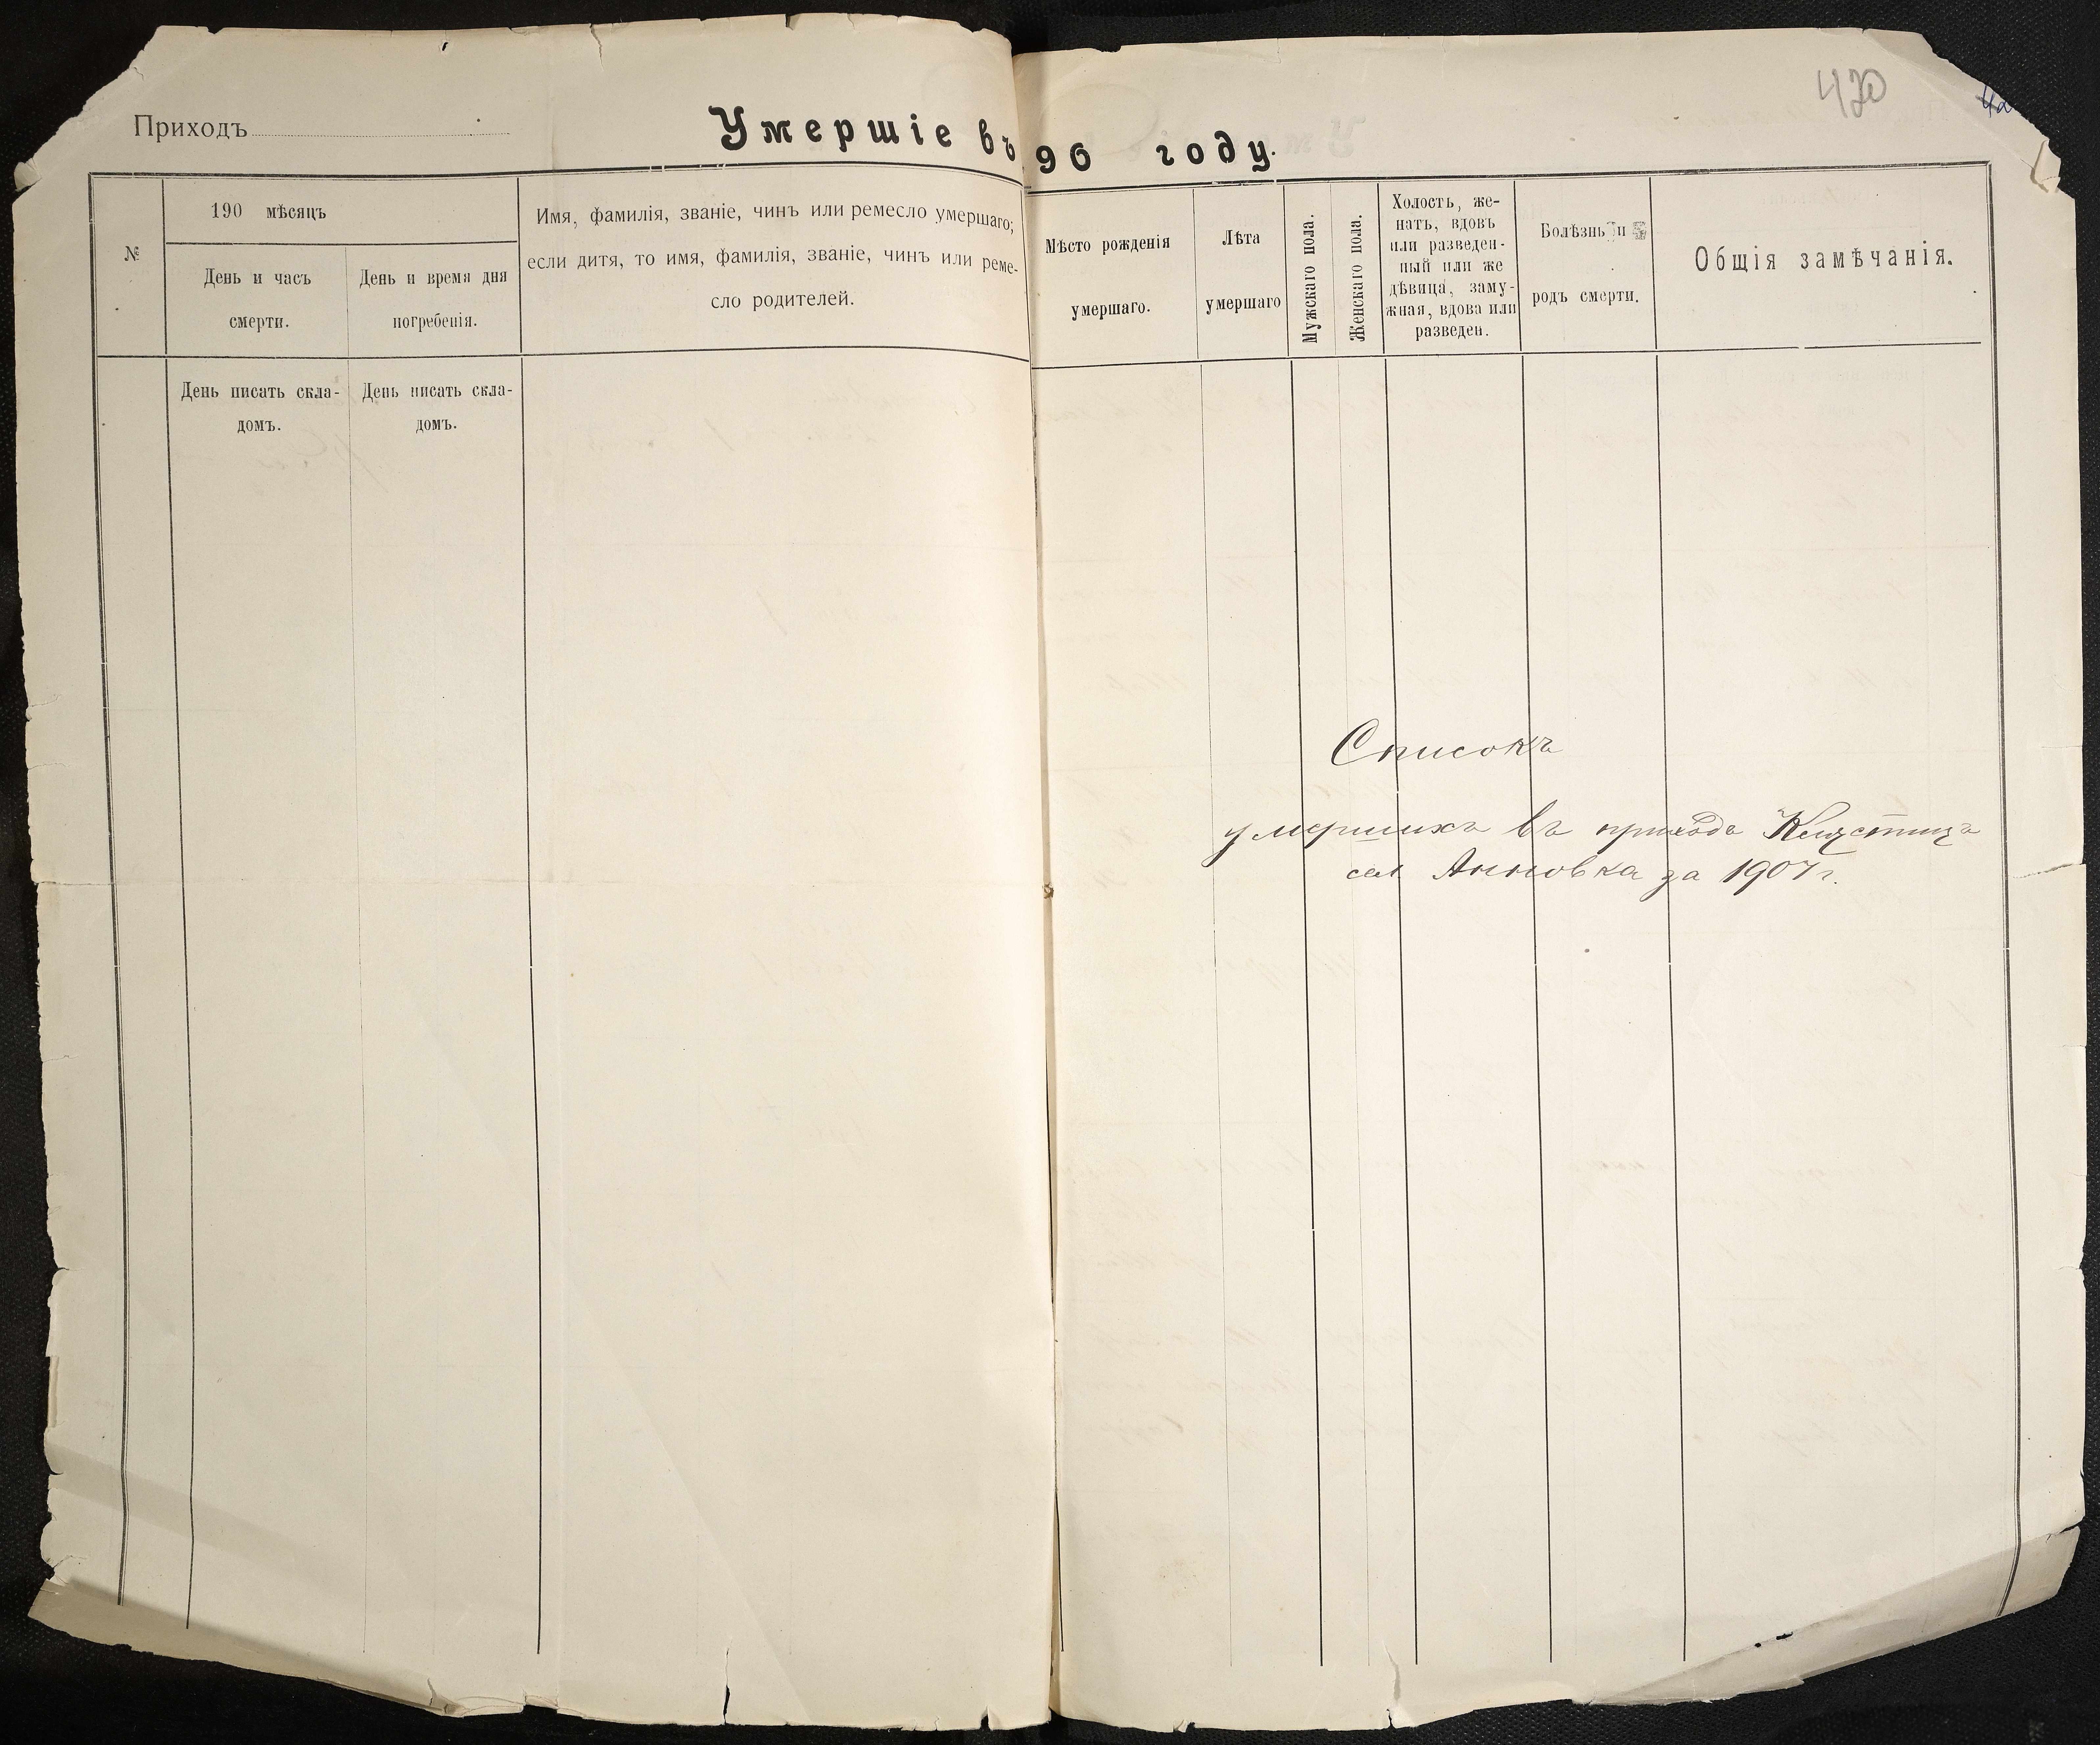 420
Приходъ
Умершіе въ 190 году.
№
190 мѣсяцъ
День и часъ
смерти.
День и время дня
погребенія.
Имя, фамилія, званіе, чинъ или ремесло умершаго;
если дитя, то имя, фамилія, званіе, чинъ или реме-
сло родителей.
Мѣсто рожденія
умершаго.
Лѣта
умершаго
Мужскаго пола.
Женскаго пола.
Холостъ, же-
натъ, вдовъ
или разведен-
ный или же
дѣвица, заму-
жная, вдова или
разведен.
Болѣзнь и
родъ смерти.
Общія замѣчанія.
День писать скла-
домъ.
День писать скла-
домъ.
Списокъ
умершихъ въ приходѣ Клястицъ
сел Анновка за 1907 г.